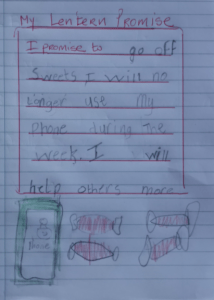 My Lentern Promise
I promise to go off
Sweets I will no
longer use my
phone during the
week. I will
help others more